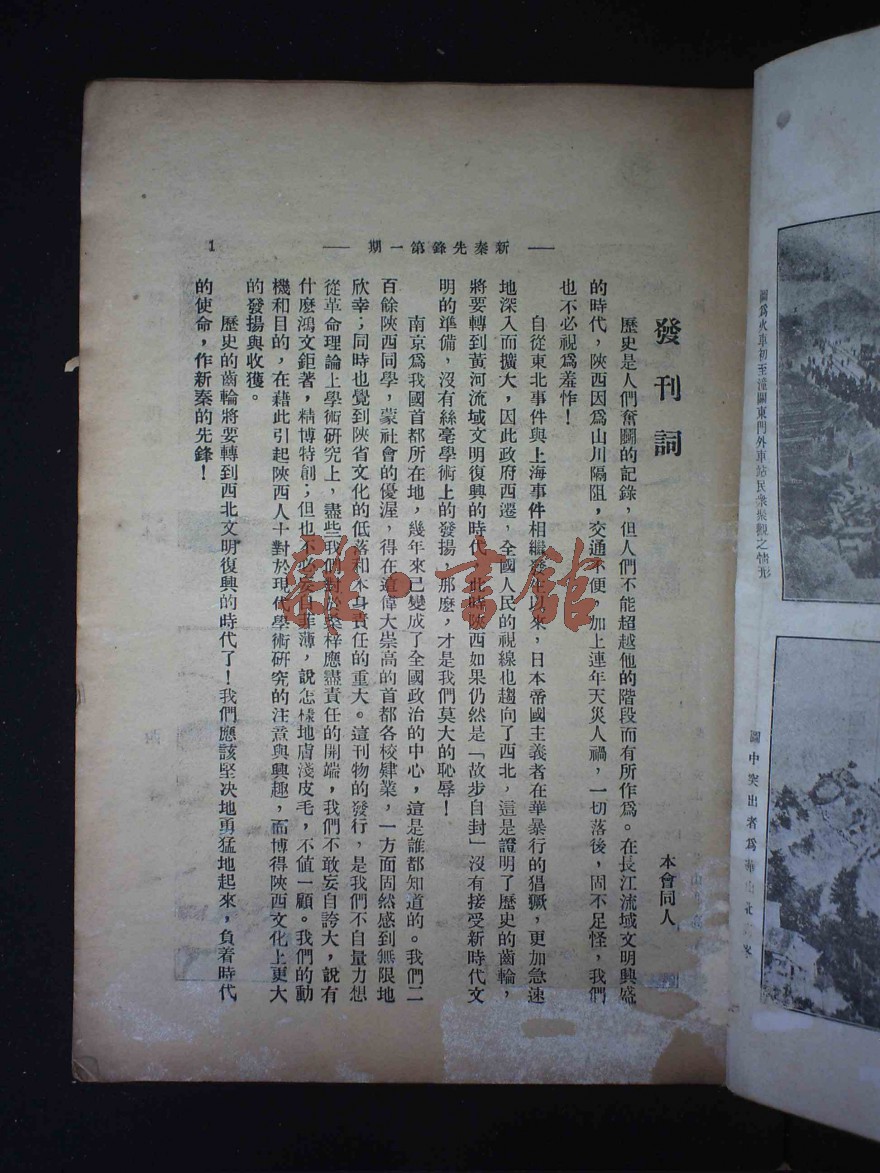 圖爲火車初至潼關東門外車站民衆參觀之情形
圖中突出者爲華山北峯
新秦先鋒第一期
1
發刊詞
本會同人
歷史是人們奮鬭的記錄，但人們不能超越他的階段而有所作爲。在長江流域文明興盛
的時代，陝西因爲山川隔阻，交通不便，加上連年天災人禍，一切落後，固不足怪，我們
也不必視爲羞怍！
自從東北事件與上海事件相繼發生以來，日本帝國主義者在華暴行的猖獗，更加急速
地深入而擴大，因此政府西遷，全國人民的視線也趨向了西北，這是證明了歷史的齒輪，
將要轉到黃河流域文明復興的時代，此時陝西如果仍然是「故步自封」沒有接受新時代文
明的準備，沒有絲毫學術上的發揚，那麼，才是我們莫大的恥辱！
南京爲我國首都所在地，幾年來已變成了全國政治的中心，這是誰都知道的。我們二
百餘陝西同學，蒙社會的優渥，得在這偉大崇高的首都各校肄業，一方面固然感到無限地
欣幸；同時也覺到陝省文化的低落和本身責任的重大。這刊物的發行，是我們不自量力想
從革命理論上學術研究上，盡些我們對於桑梓應盡責任的開端，我們不敢妄自誇大，說有
什麼鴻文鉅著，精博特創；但也不必妄自菲薄，說怎樣地膚淺皮毛，不值一顧。我們的動
機和目的，在藉此引起陝西人士對於現代學術研究的注意與興趣，而博得陝西文化上更大
的發揚與收獲。
歷史的齒輪將要轉到西北文明復興的時代了！我們應該堅决地勇猛地起來，負着時代
的使命，作新秦的先鋒！
雜·書館